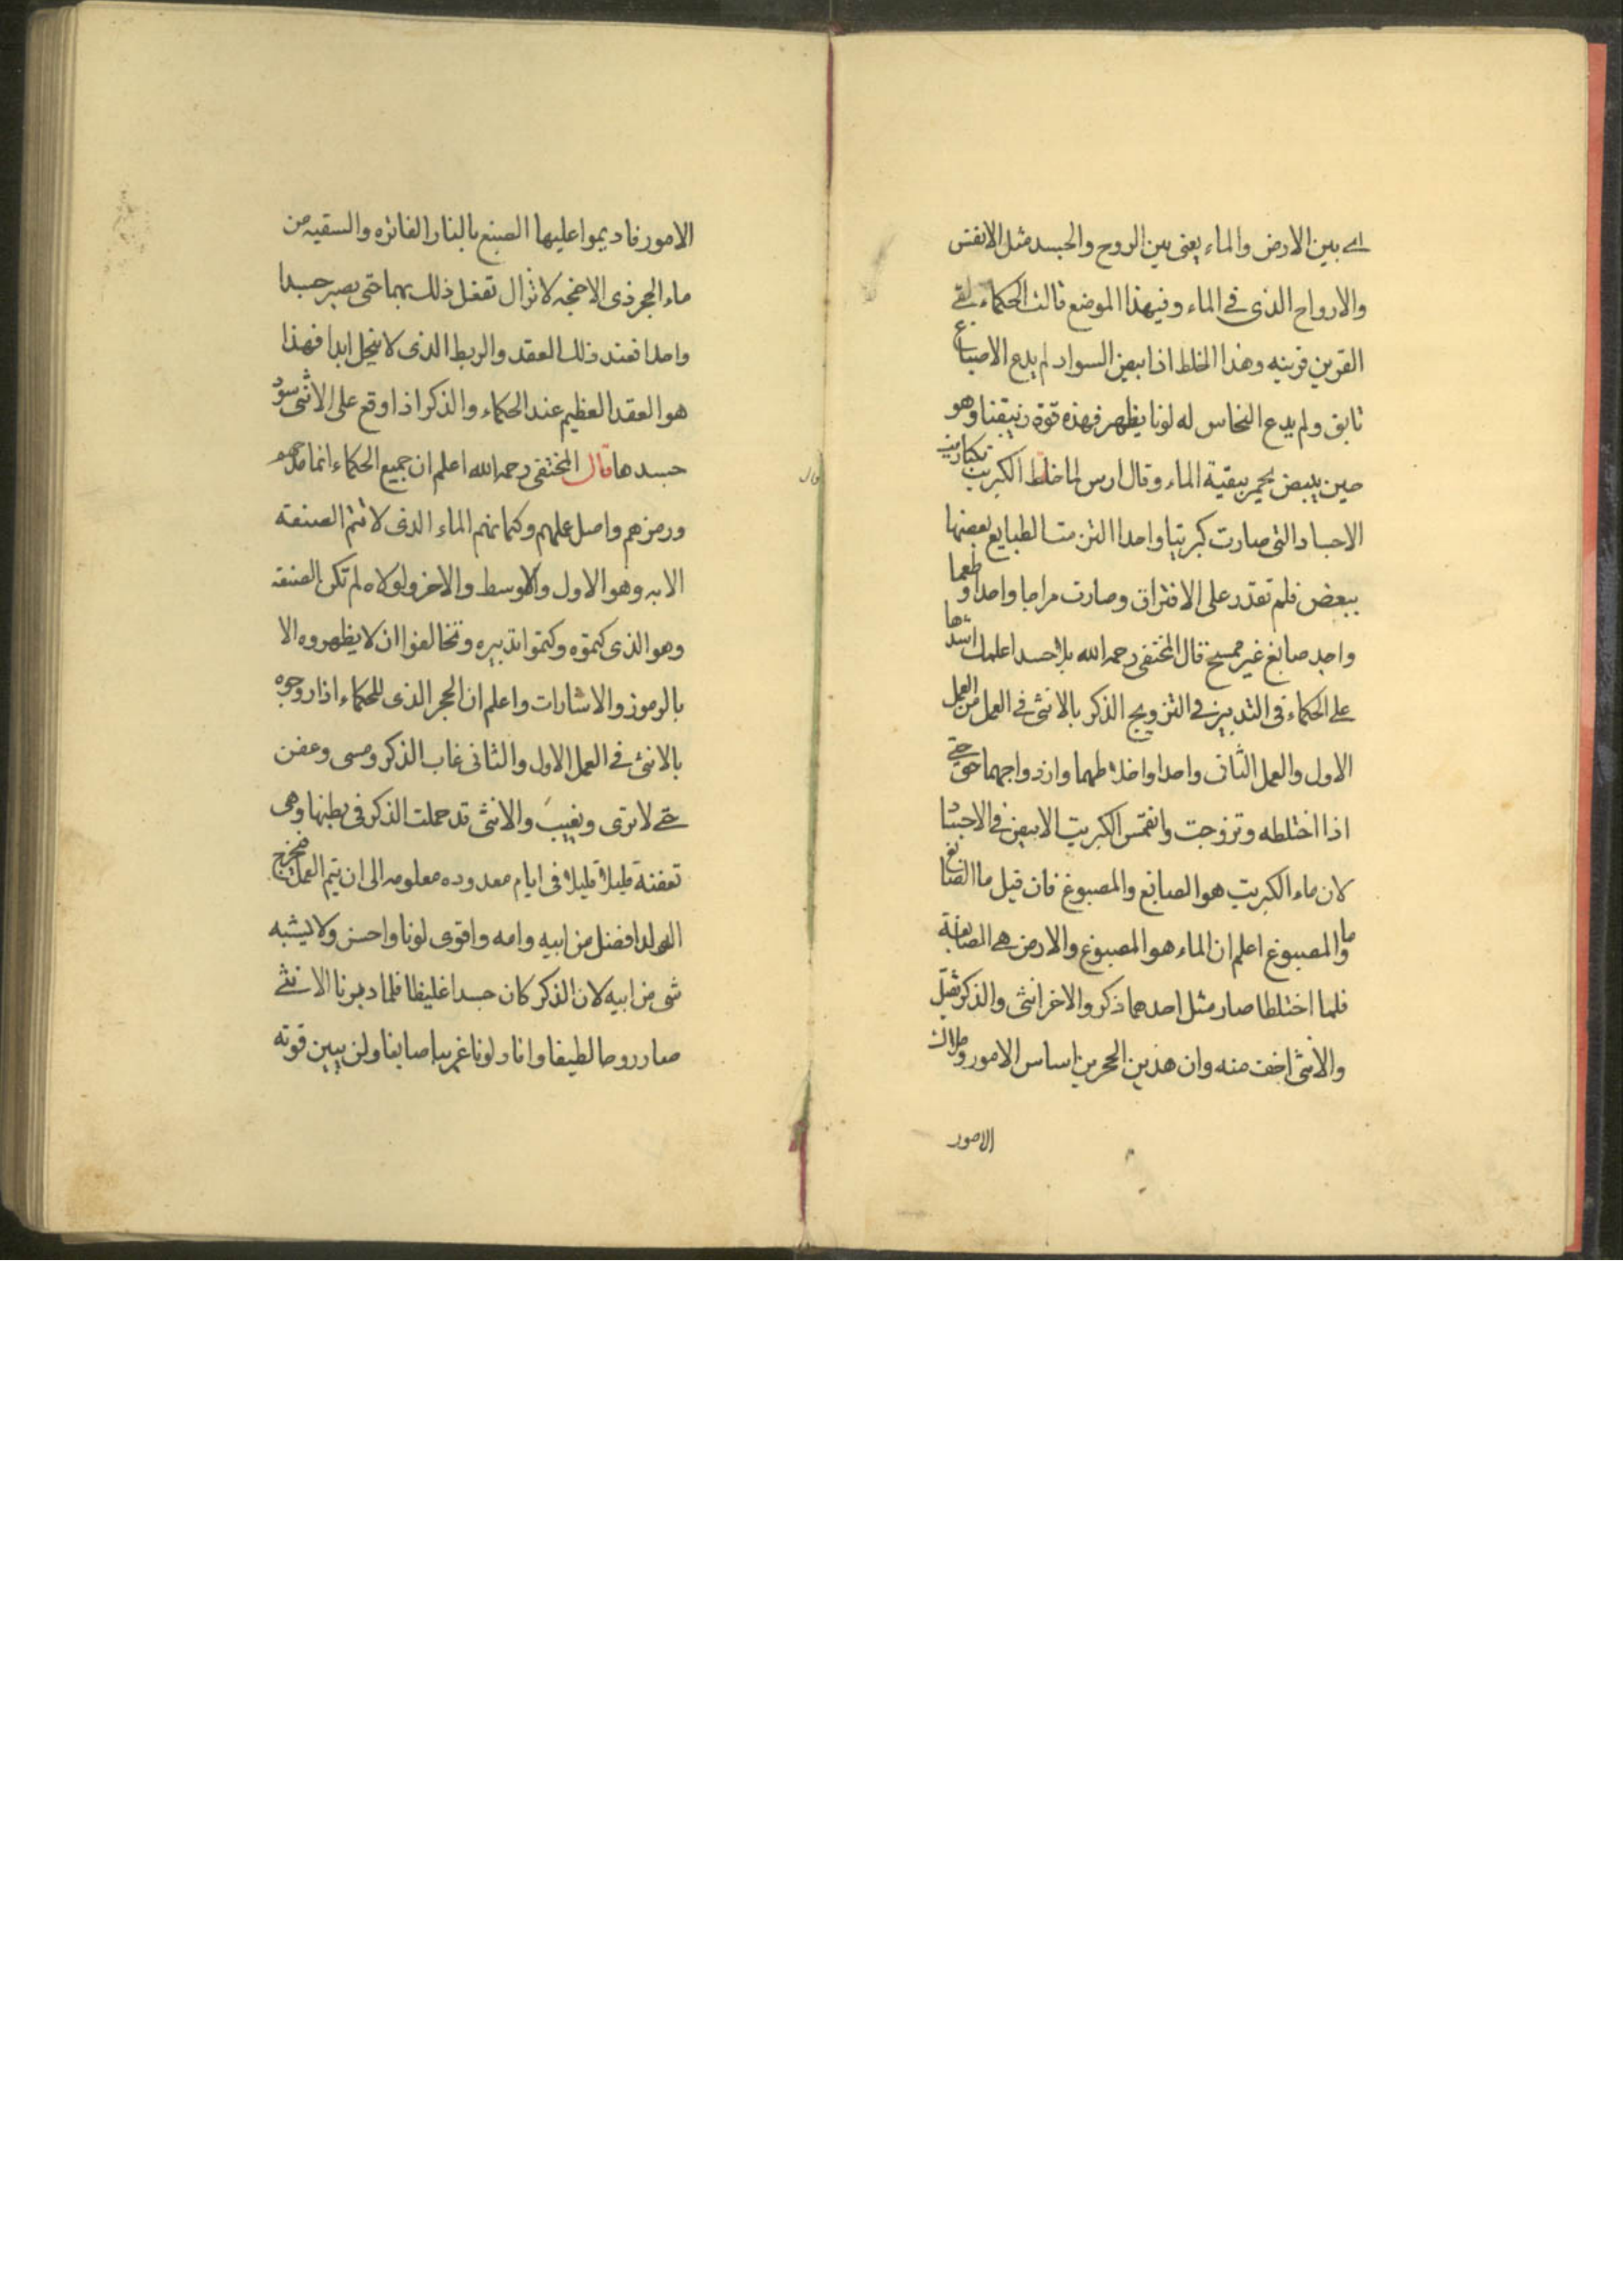 اى بين الارض والماء يعنى بين الروح والجسد مثل الانفس
والارواح الذى فى الماء وفيهذا الموضع قالت الحكماء لقى
القرين قرينه وهذا الخلط اذا ابيض السواد لم يدع الاصباغ
تابق ولم يدع النحاس له لونا يظهر فهذه قوة زنيقنا وهو
حين يبيض يحمر ببقية الماء وقال ارس لما خلط الكبريت بكباريت
الاجساد التى صارت كبريتا واحدا التزمت الطبايع بعضها
ببعض فلم تقدر على الافتراق وصارت مزاجا واحدا وطعما
واحد صابغ غير ممسح قال المختفى رحمه الله بلا حسد اعلمك اشدها
على الحكماء فى التدبير فى التزويج الذكر بالانثى فى العمل من العمل
الاول والعمل الثانى واحدا واخلاطهما وازدواجهما حق حتى
اذا اختلطه وتزوجت وانغمس الكبريت الابيض فى الاجساد
لان ماء الكبريت هو الصابغ والمصبوغ فان قيل ما الصابغ
وما المصبوغ اعلم ان الماء هو المصبوغ والارض هى الصابغة
فلما اختلطا صار مثل احدهما ذكر والاخر انثى والذكر ثقيل
والانثى اخف منه وان هذين الحجرين اساس الامور وملاك
الامور
الامور فاديموا عليها الصبغ بالنار الفاتره والسقيه من
ماء الحجر ذى الاجنحه لا تزال تفعل ذلك بهما حتى يصير جسدا
واحدا فعند ذلك العقد والربط الذى لا ينحل ابدا فهذا
هو العقد العظيم عند الحكماء والذكر اذا وقع على الانثى سود
جسدها قال المختفى رحمه الله اعلم ان جميع الحكماء انما مدحهم
ورمزهم واصل علمهم وكتمانهم الماء الذى لا تتم الصنعة
الا به وهو الاول والاوسط والاخر ولولاه لم تكن الصنعه
وهو الذى كتموه وكتموا تدبيره وتخالفوا ان لا يظهروه الا
بالرموز والاشارات واعلم ان الحجر الذى للحكماء اذا زوجوه
بالانثى فى العمل الاول والثانى غاب الذكر ومسى وعفن
حتى لا ترى ويغيب والانثى قد حملت الذكر فى بطنها وهى
تعفنة قليلا قليلا فى ايام معدوده معلومه الى ان يتم العمل فيخرج
الولد افضل من ابيه وامه واقوى لونا واحسن ولا يشبه
شى من ابيه لان الذكر كان جسدا غليظا فلما دبرنا الانثى
صار روحا لطيفا وافاد لونا غريبا صابغا ولن يبين قوته